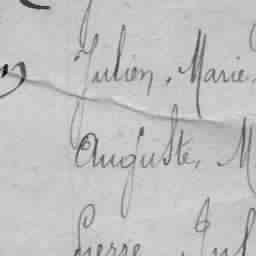 Julien, Marie,
Auguste, M
Pierre Jul